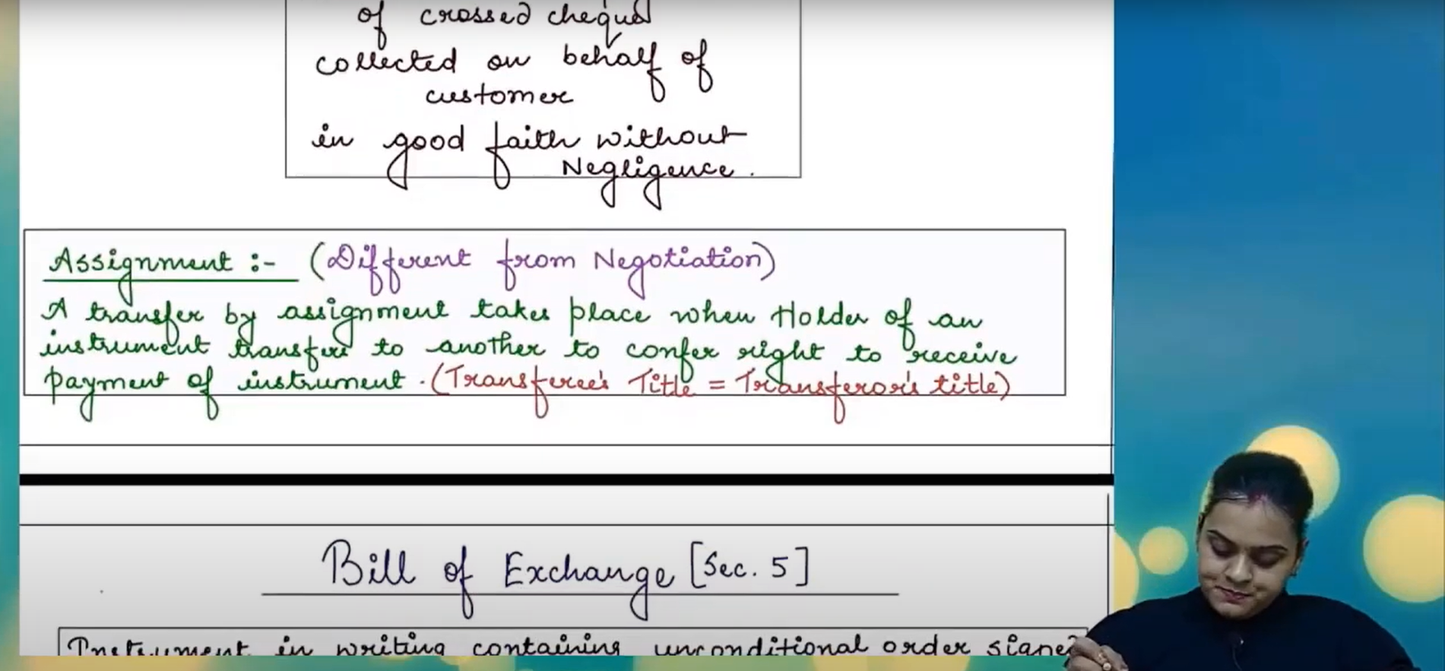 of crossed cheque
collected on behalf of
customer
in good faith without
Negligence.
Assignment :- (Different from Negotiation)
A transfer by assignment takes place when Holder of an
instrument transfers to another to confer right to receive
payment of instrument. (Transferee's Title = Transferor's title)
Bill of Exchange [Sec. 5]
Instrument in writing containing unconditional order signed